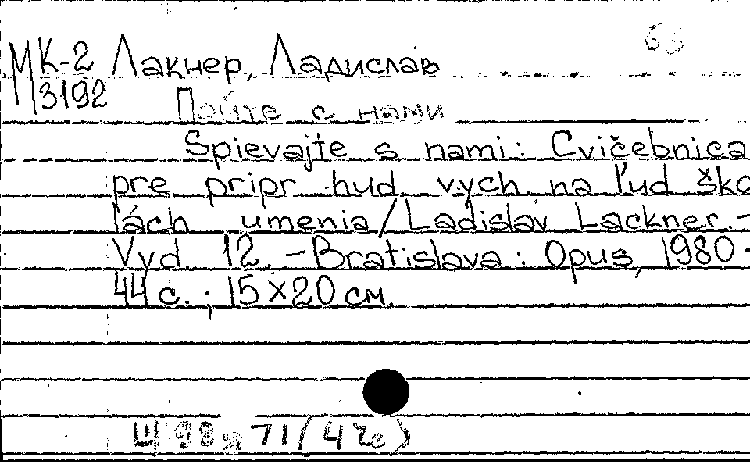 МК-2 Лакнер, Ладислав
3192 Пойте с нами
Spievajte s nami: Cvičebnica
pre pripr hud. vých. na ľud ško
lách umenia/Ladislav Lackner.-
Vyd 12. -Bratislava: Opus, 1980.
44 с.; 15×20 см.
Щ 98я 71(4Че)